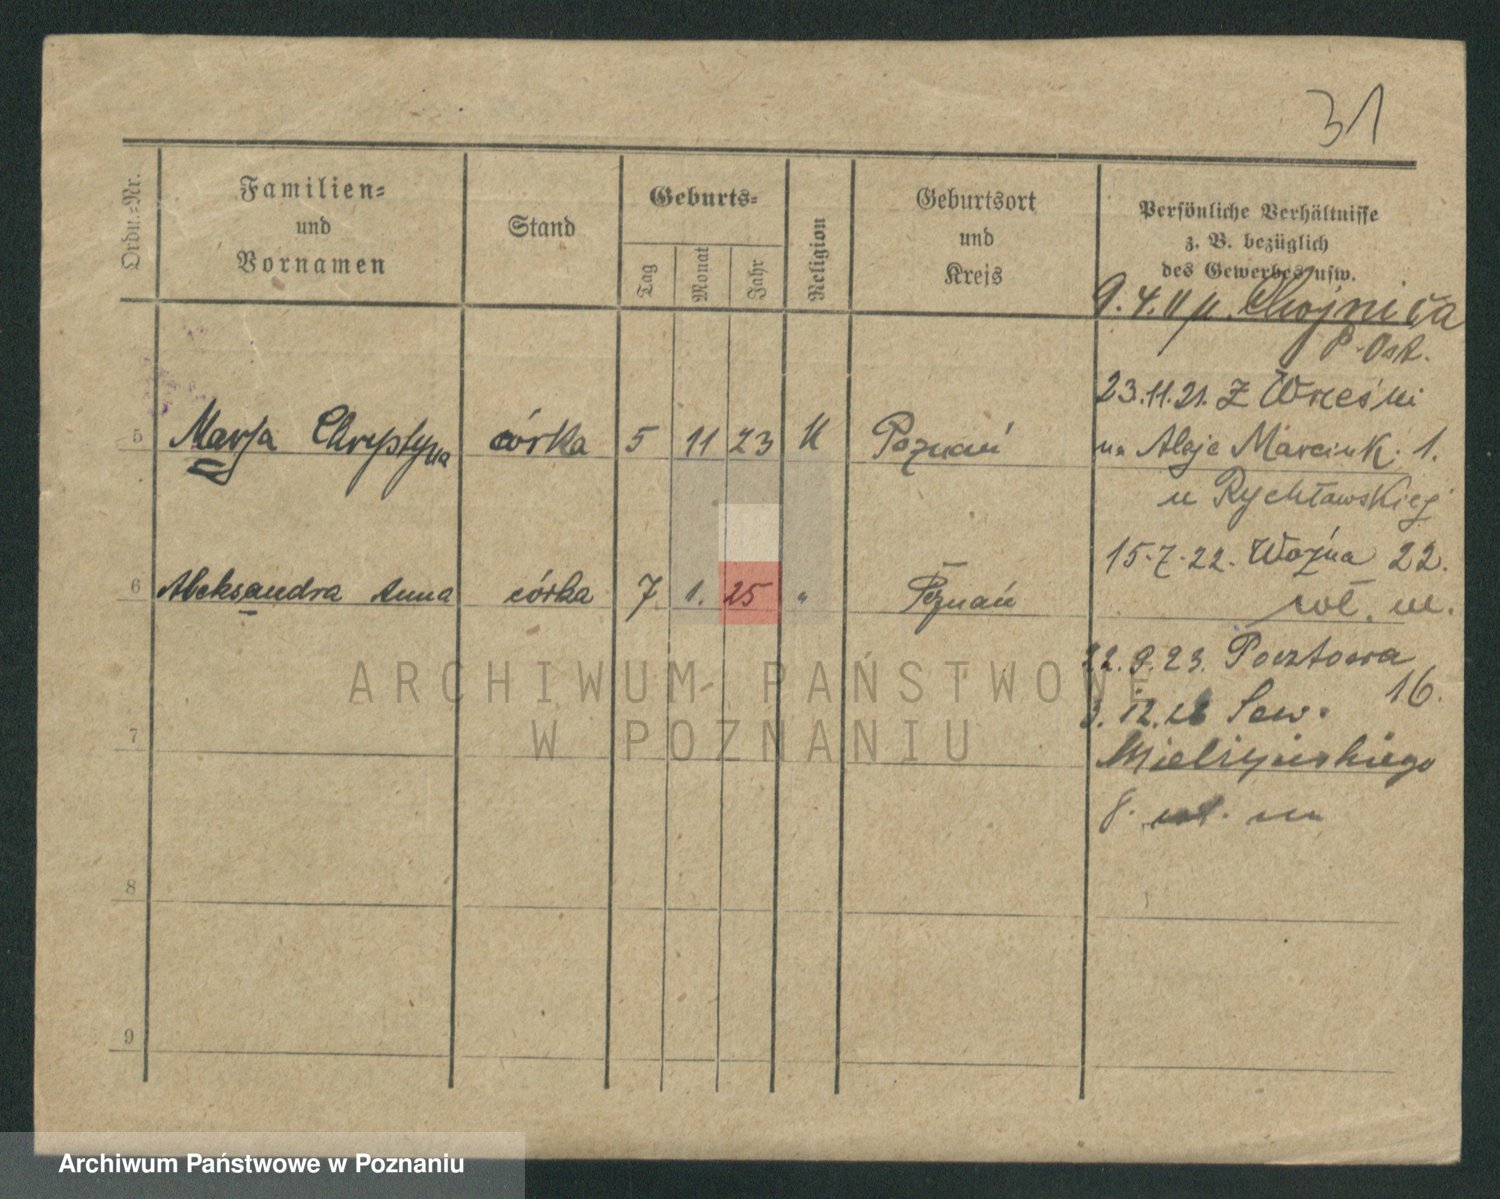 31
Ordn.-Nr.
Familien-
und
Vornamen
Stand
Geburts-
Tag
Monat
Jahr
Religion
Geburtsort
und
Kreis
Persönliche Verhältnisse
z. B. bezüglich
des Gewerbes usw.
9.4.11 Chojnica
P. Ost.
23.11.21. Z Wrześni
5 Marja Chrystyna córka 5 11 23 K Poznań
na Aleje Marcink. 1.
u Rychławskieg
15.7.22. Woźna 22.
6 Aleksandra Anna córka 7. 1. 25 " Poznań
22.9.23. Pocztowa
16.
3.12. Sew.
7
Mielżyńskiego
8.
8
9
ARCHIWUM PAŃSTWOWE
W POZNANIU
Archiwum Państwowe w Poznaniu